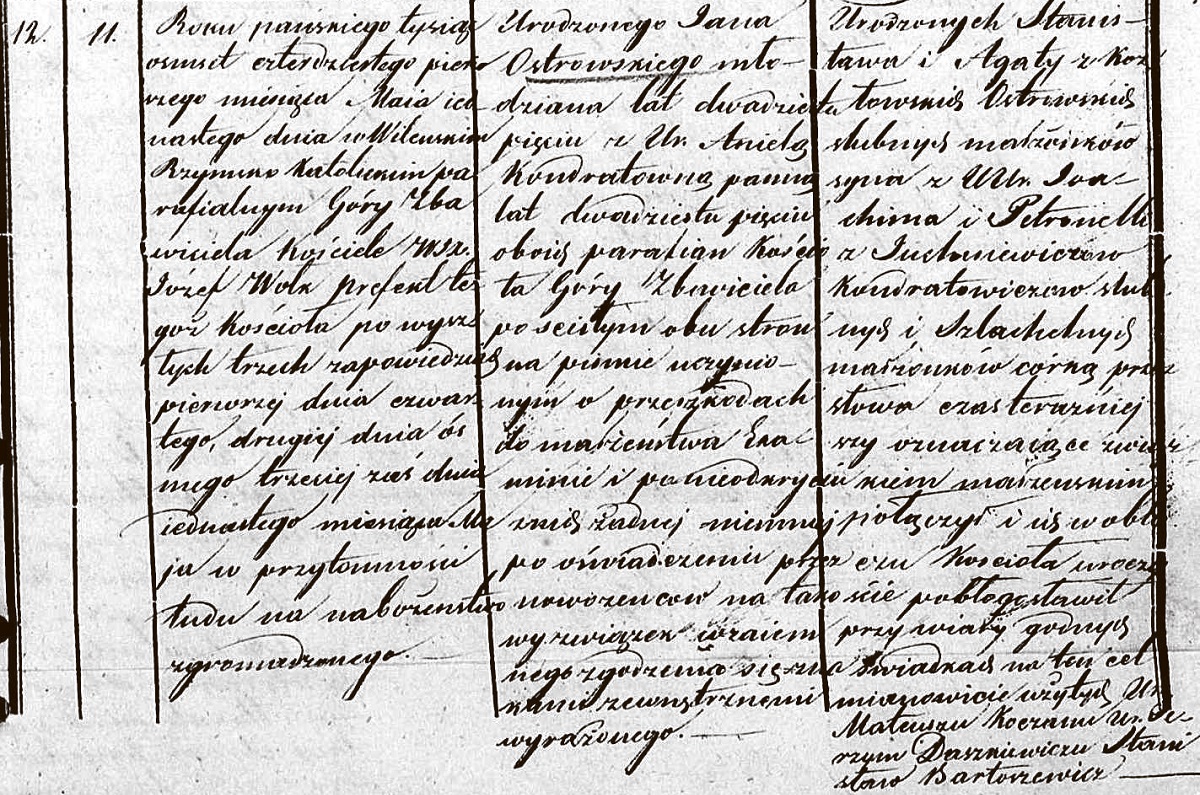 12.
11.
Roku pańskiego tysiąc
ośmset czterdziestego pierw
wszego miesiąca Maia ied
nastego dnia w Wileńskim
Rzymsko Katolickim pa
rafialnym Góry Zba
wiciela Kościele WJX.
Józef Wołk Prefekt te
goż Kościoła po wysz
łych trzech zapowiedziach
pierwszej dnia czwar
tego, drugiej dnia ós
mego trzeciej zaś dnia
iednastego miesiąca Ma
ja w przytomności
ludu na nabożeństwo
zgromadzonego.
Urodzonego Jana
Ostrowskiego mło-
dziana lat dwadzieścia
pięciu z Ur. Anielą
Kondratowną panną
lat dwadziestu pięciu
oboich parafian Kościo
ła Góry Zbawiciela
po ścisłym obu stron
na piśmie uczynio-
nym o przeszkodach
do małżeństwa Exa
minie i po nieodkryciu
znich żadnej niemniej
po oświadczeniu przez
nowożeńcow na tako
wy związek wzaiem
nego zgodzenia się zna
kami zewnętrznemi
wyrażonego.
Urodzonych Stanis-
ława i Agaty z Koz
łowskich Ostrowskich
ślubnych małżonków
syna z UUr. Joa-
chima i Petronelli
z Juchniewiczow
Kondratowiczow ślub
nych i Szlachetnych
małżonków córką przez
słowa czas teraźniej
szy oznaczające związ
kiem małżeńskim
połączył i ich w obli
czu Kościoła uroczy
ście pobłogosławił
przy wiary godnych
Świadkach na ten cel
mianowicie użytych Ur.
Mateuszu Koczanu Ur. Je-
rzym Daszkiewiczu Stani
sław Bartoszewicz